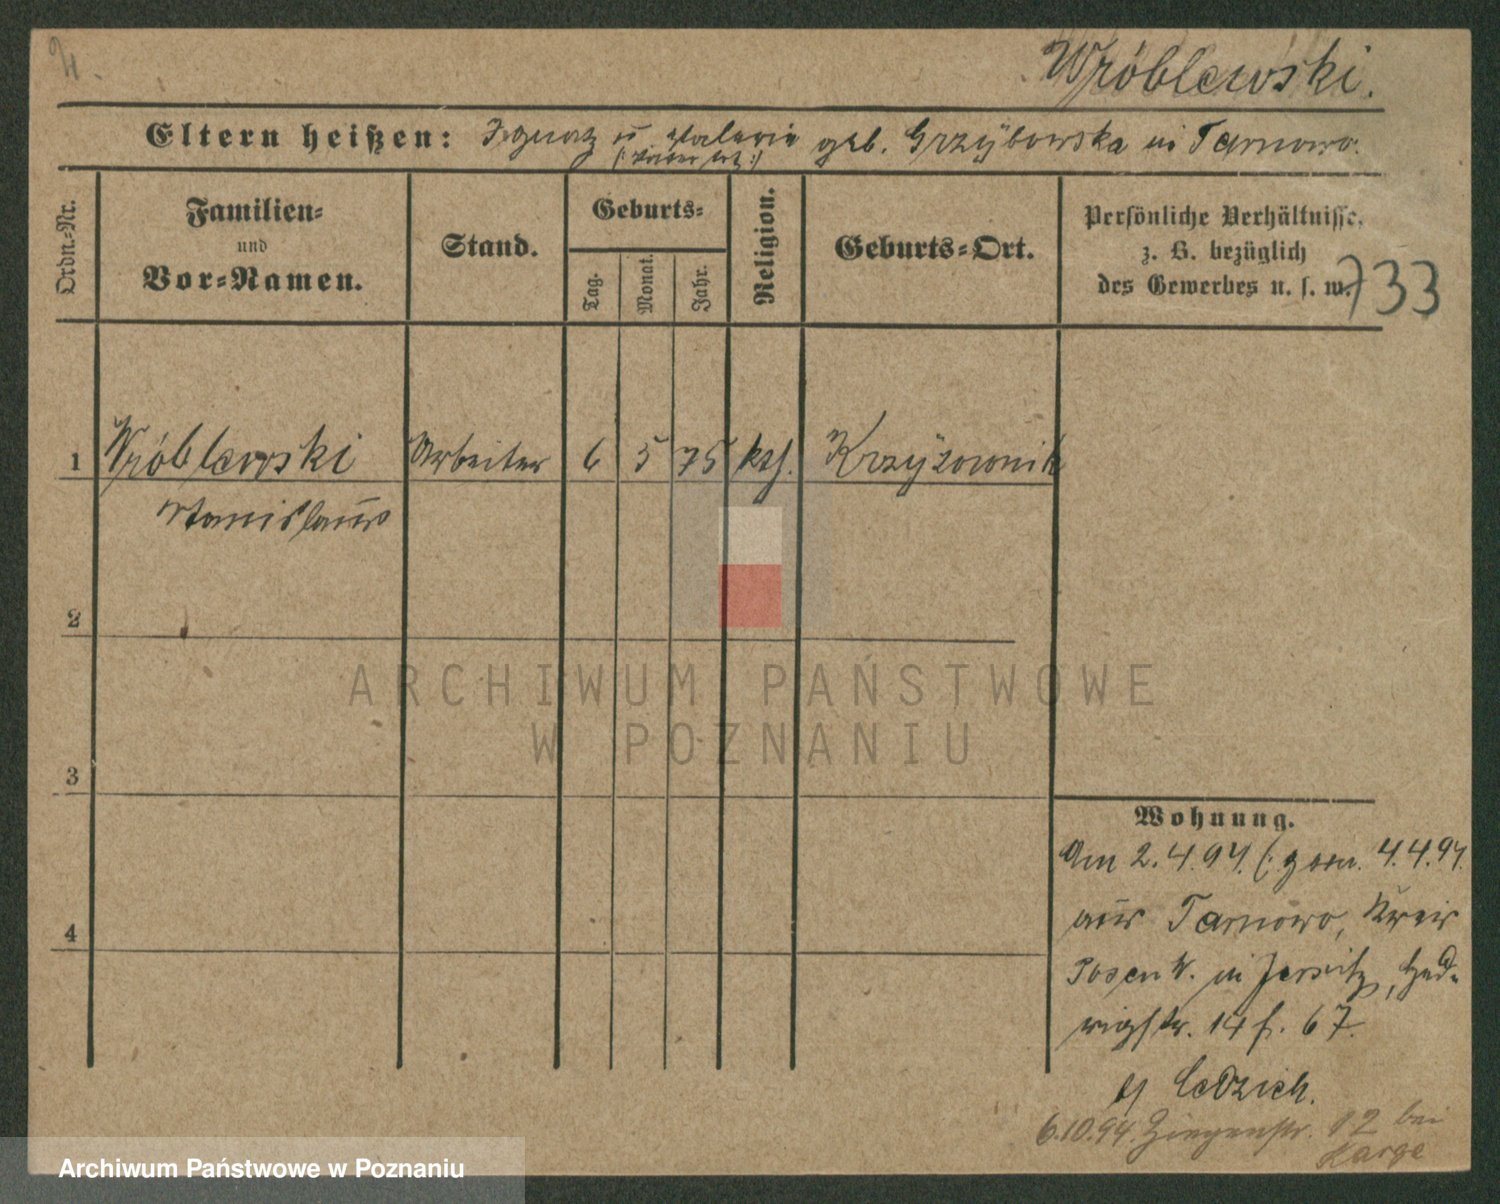 Wróblewski.
Eltern heißen: Ignatz u Valerie geb. Grzybowska in Tarnowo.
Ordn.-Nr.
Familien-
und
Vor-Namen.
Stand.
Geburts-
Tag.
Monat.
Jahr.
Religion.
Geburts-Ort.
Persönliche Verhältnisse,
z. B. bezüglich
des Gewerbes u. s. w.
733
1 Wróblewski Arbeiter 6 5 75 kth. Krzyżownik
Stanislaus
2
3
4
Wohnung.
Am 2.4.94. (: gem. 4.4.94.
aus Tarnowo, Kreis
Posen W. in Jersitz, Hed-
wigstr. 14 f. 67.
b/ Cedzich.
6.10.94. Ziegenstr. 12 bei
Karge
ARCHIWUM PAŃSTWOWE
W POZNANIU
Archiwum Państwowe w Poznaniu